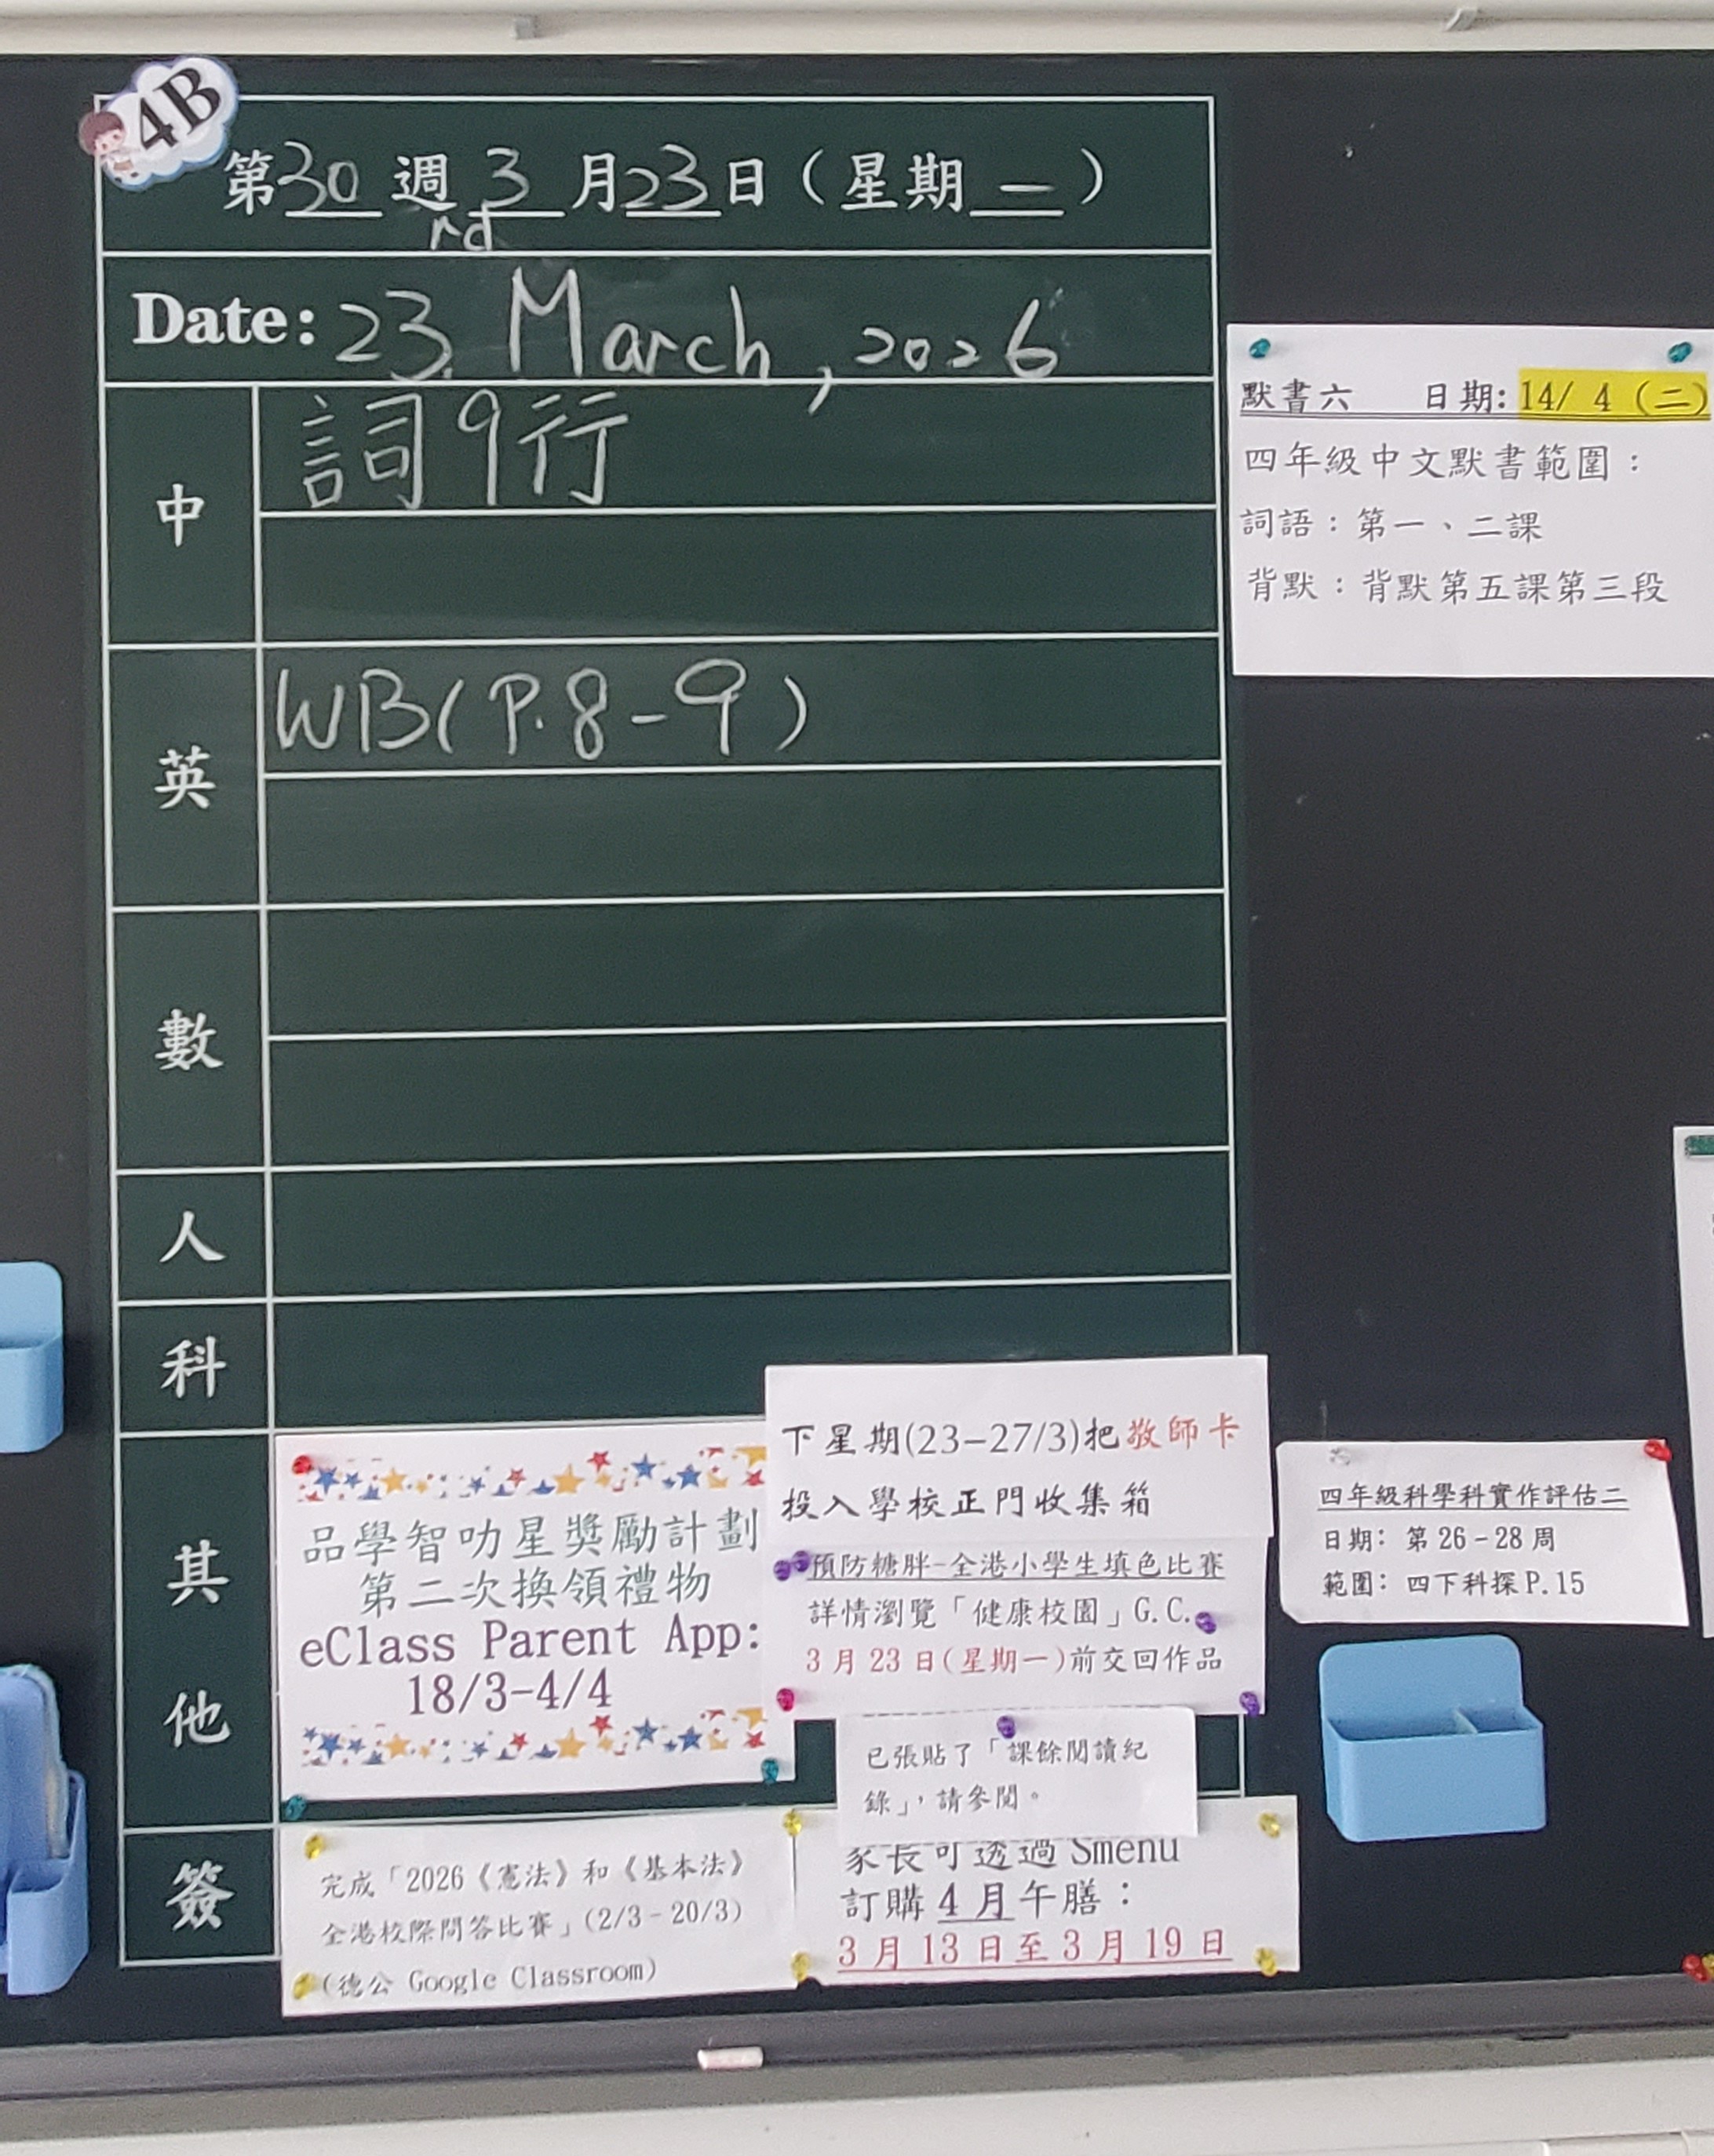 4B
第30週3月23日（星期一）
rd
Date: 23 March, 2026
中
詞9行
英
WB(P.8-9)
數
人
科
其他
簽
默書六 日期: 14/ 4 (二)
四年級中文默書範圍：
詞語：第一、二課
背默：背默第五課第三段
品學智叻星獎勵計劃
第二次換領禮物
eClass Parent App:
18/3-4/4
下星期(23-27/3)把敬師卡
投入學校正門收集箱
預防糖胖-全港小學生填色比賽
詳情瀏覽「健康校園」G.C.
3月23日(星期一)前交回作品
已張貼了「課餘閱讀紀
錄」，請參閱。
四年級科學科實作評估二
日期: 第26-28周
範圍: 四下科探P.15
完成「2026《憲法》和《基本法》
全港校際問答比賽」(2/3-20/3)
(德公 Google Classroom)
家長可透過 Smenu
訂購4月午膳：
3月13日至3月19日